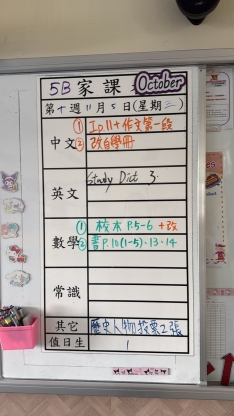 5B 家課 October
第十週 11月5日(星期三)
中文
① Ip.11+作文第一段
② 改自學冊
英文
Study Dict 3.
數學
① 校本 P.5-6 +改
② 書P.10(1-5)、13、14
常識
其它
歷史人物投票2張
值日生
1